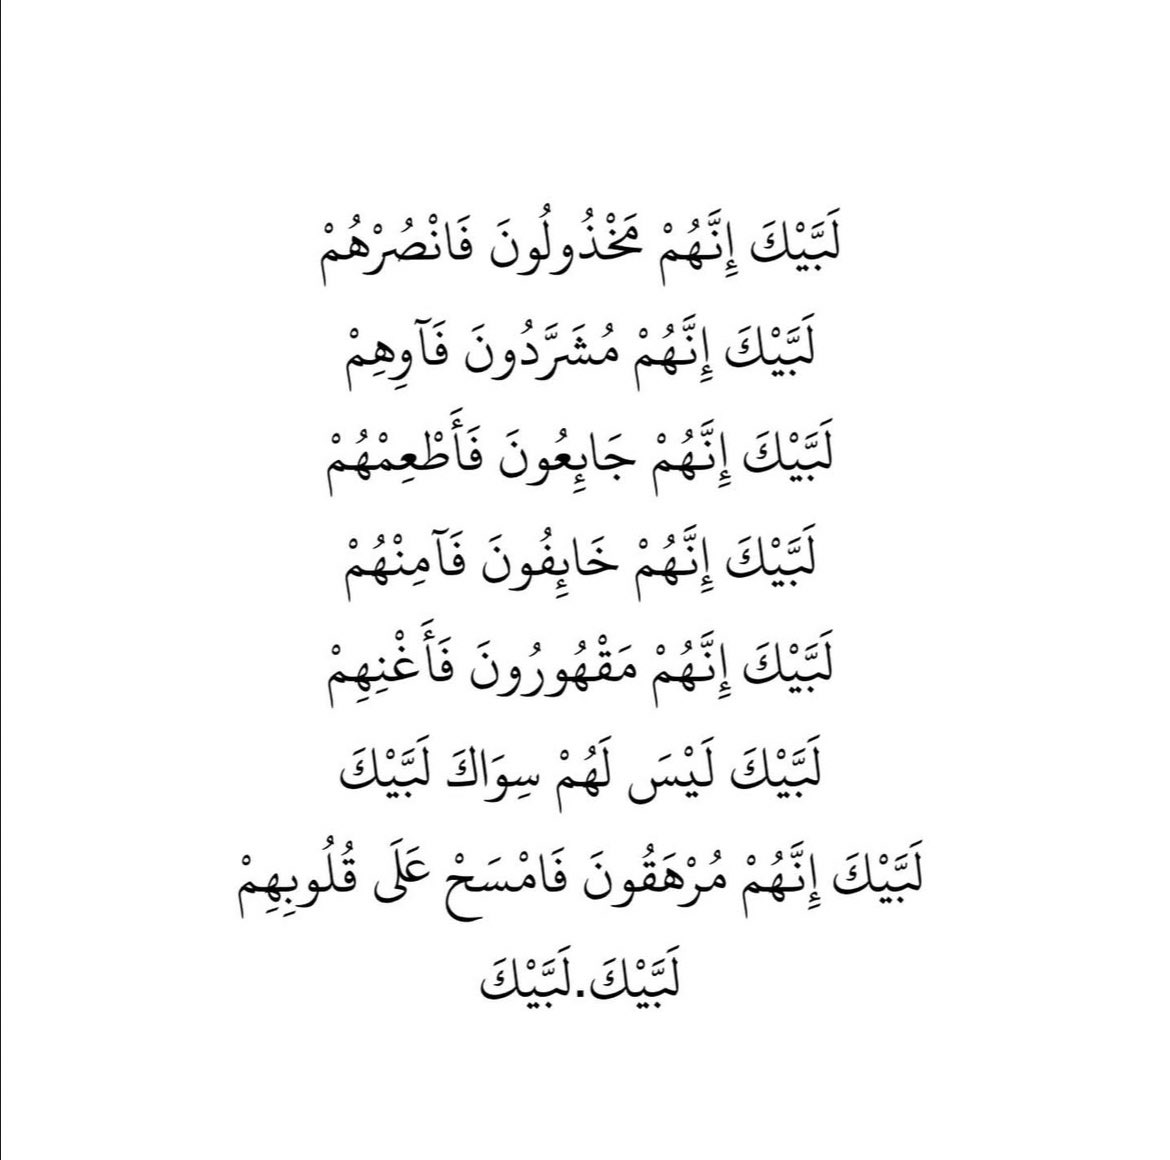 لَبَّيْكَ إِنَّهُمْ مَخْذُولُونَ فَانْصُرْهُمْ
لَبَّيْكَ إِنَّهُمْ مُشَرَّدُونَ فَآوِهِمْ
لَبَّيْكَ إِنَّهُمْ جَائِعُونَ فَأَطْعِمْهُمْ
لَبَّيْكَ إِنَّهُمْ خَائِفُونَ فَآمِنْهُمْ
لَبَّيْكَ إِنَّهُمْ مَقْهُورُونَ فَأَغْنِهِمْ
لَبَّيْكَ لَيْسَ لَهُمْ سِوَاكَ لَبَّيْكَ
لَبَّيْكَ إِنَّهُمْ مُرْهَقُونَ فَامْسَحْ عَلَى قُلُوبِهِمْ
لَبَّيْكَ.لَبَّيْكَ